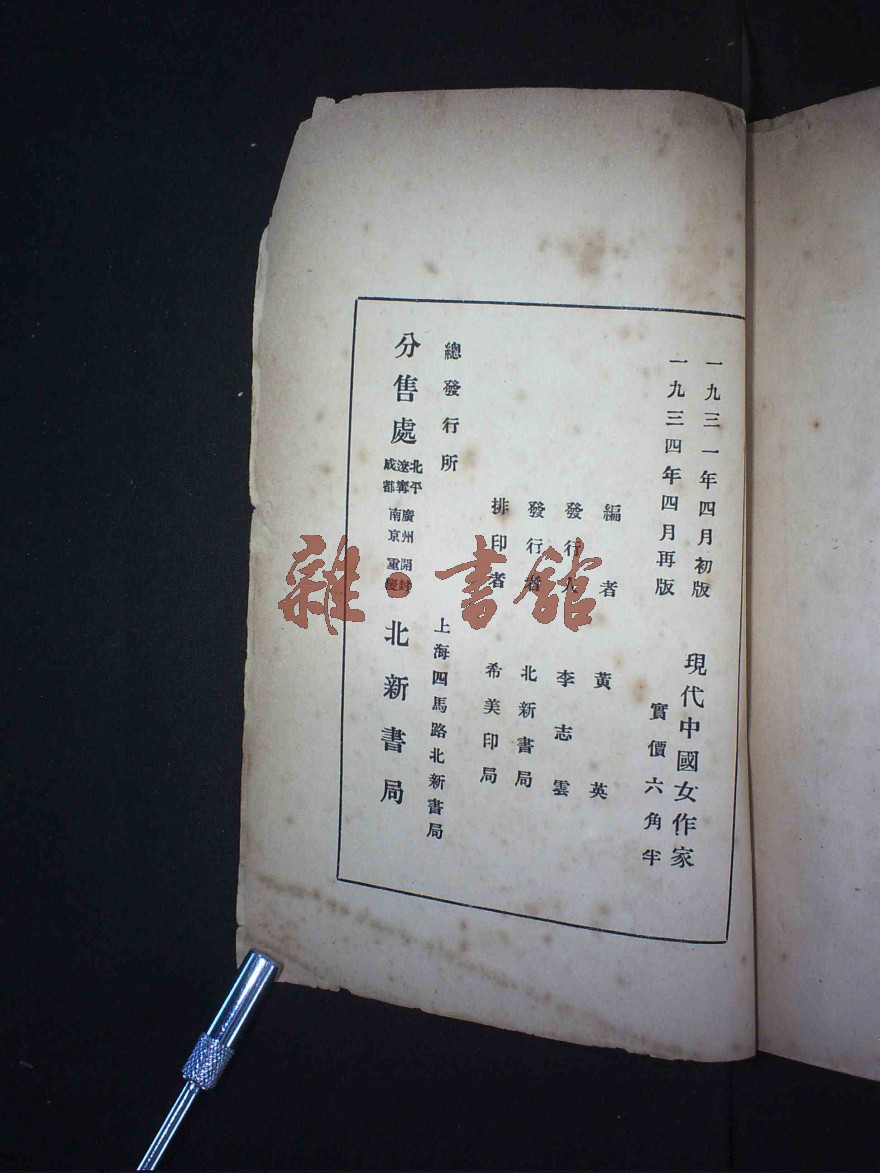 一九三一年四月初版
一九三四年四月再版
現代中國女作家
實價六角半
編者 黃英
發行人 李志雲
發行者 北新書局
排印者 希美印局
總發行所 上海四馬路北新書局
分售處 北平 遼寧 成都 廣州 南京 開封 重慶 北新書局
雜·書館